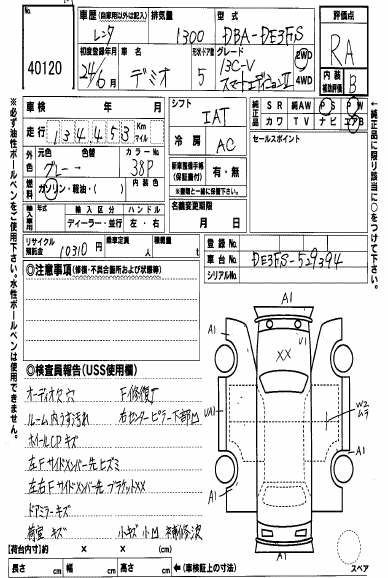 40120
車歴 (自家用以外は記入) レンタ
排気量 1300
型式 DBA-DE3FS
評価点 RA
初度登録年月 24年6月
車名 デミオ
形状・ドア数 5
グレード 13C-V スマートエディションⅡ
2WD
4WD
内装補助評価 B
車検 年 月
シフト IAT
純正品 SR 純AW PS PW
カワ TV ナビ エアB
走行 134453 Km マイル
冷房 AC
セールスポイント
外色 元色 色替 グレー
カラーNo. 38P
内装色
燃料 ガソリン・軽油・( )
新車整備手帳(保証書) 有・無
輸入車用 輸入区分 ハンドル
ディーラー・並行 左・右
名義変更期限 月 日
リサイクル預託金 10310円
乗車定員 人
積載量 t
登録No.
車台No. DE3FS-529394
シリアルNo.
◎注意事項 (修復・不具合箇所および状態)
◎検査員報告 (USS使用欄)
オーディオ欠 穴 F修復
ルーム内うす汚れ 右センターピラー下部凹
ホイールCPキズ
左Fサイドメンバー先ヒズミ
左右Fサイドメンバー先ブラケットXX
ドアミラーキズ
荷室キズ 小キズ小凹 補修波
A1
A1
XX
UA1
UA1
A1
A1
W2
ムラ
A1
【荷台内寸】 約 × × (cm)
長さ cm 幅 cm 高さ cm ◀(車検証上の寸法)
スペア
※必ず油性ボールペンをご使用下さい。水性ボールペンは使用できません。